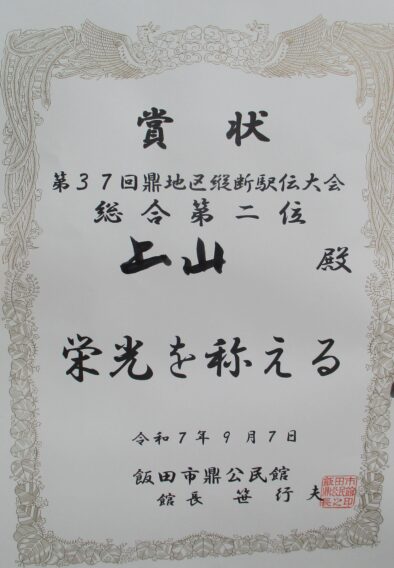 賞状
第37回鼎地区縦断駅伝大会
総合第二位
上山 殿
栄光を称える
令和7年9月7日
飯田市鼎公民館
館長 笹 行夫